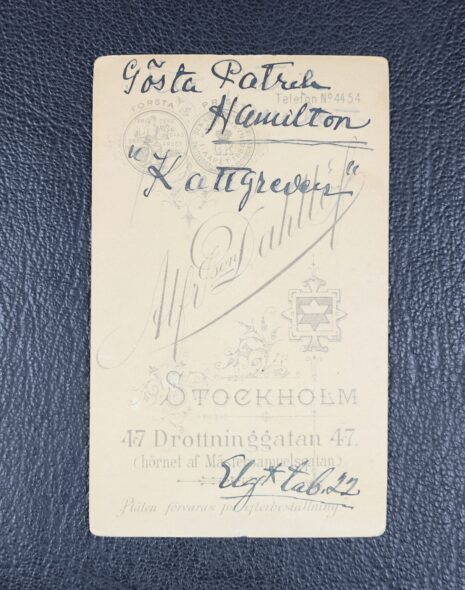 Gösta Patrik
Telefon Nº 44 54
Hamilton
FÖRSTA PRIS
"Kattgreven"
Alfr Eson Dahllöf
STOCKHOLM
47 Drottninggatan 47.
(hörnet af Mästersamuelsgatan)
Elgt tab. 22
Plåten förvaras för efterbeställning